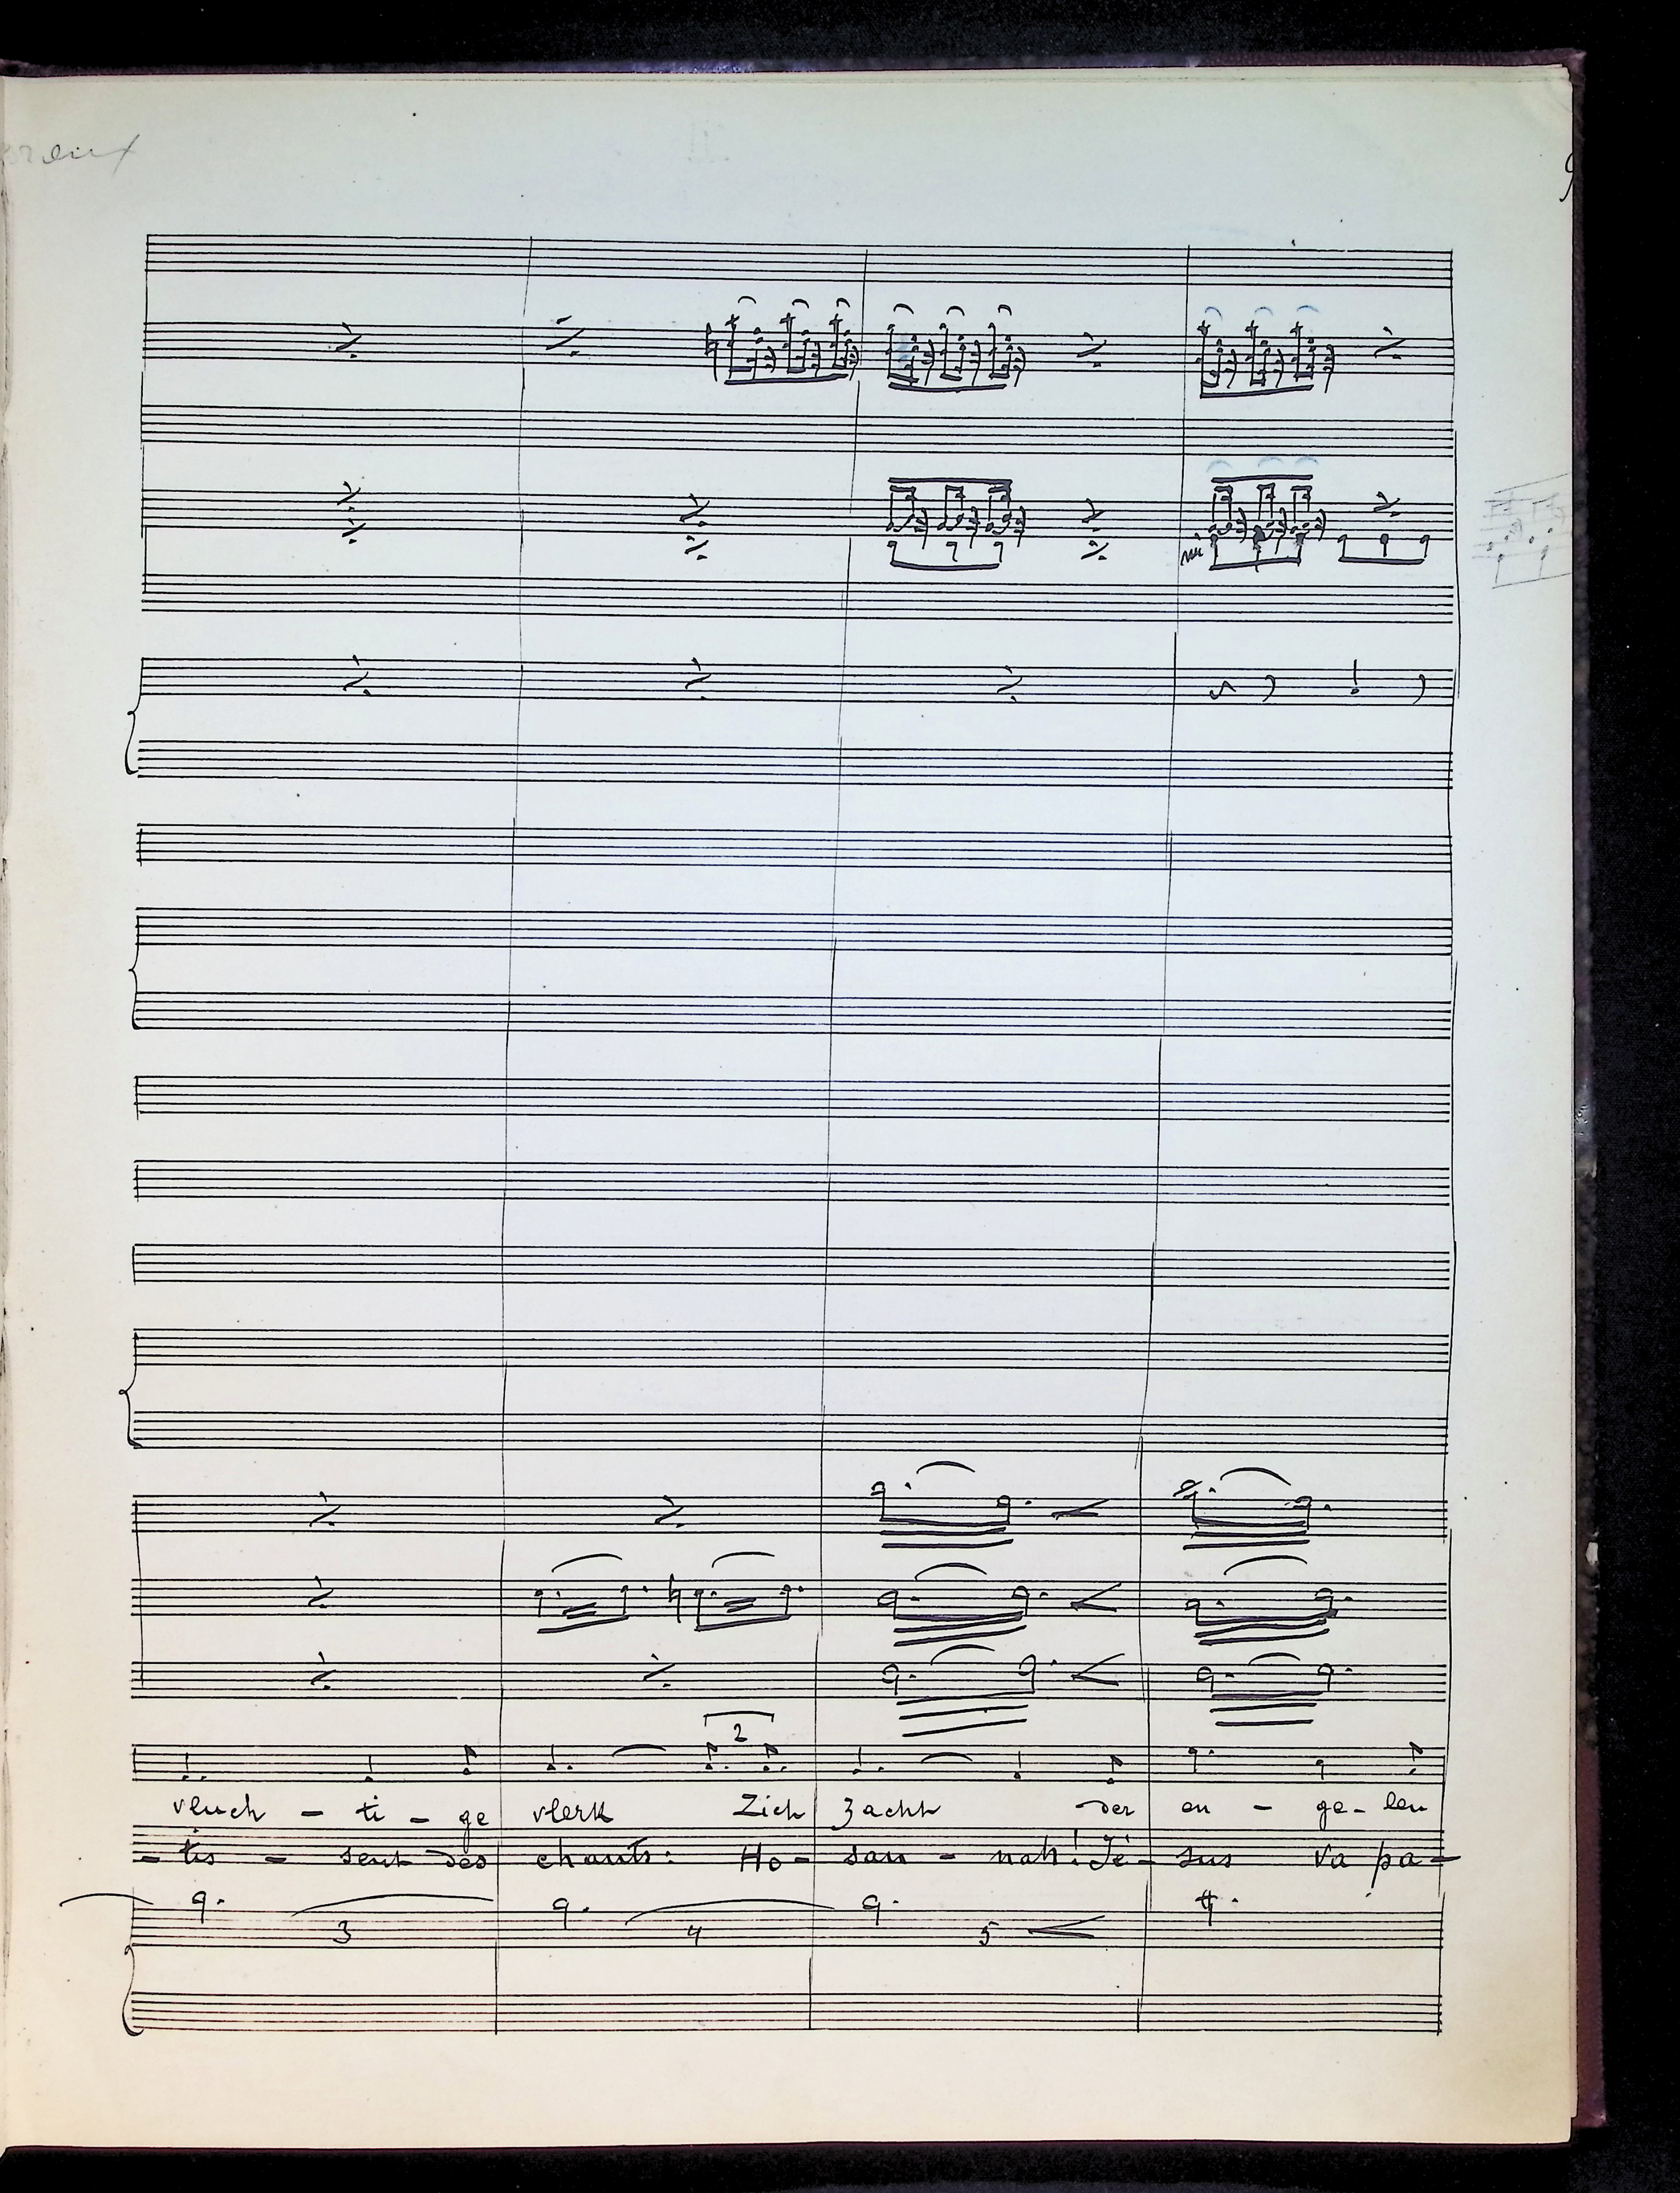 9
mi
2
vluch - ti - ge vlerk Zich zacht der en - ge - len
- tis - sent des chants: Ho - san - nah! Jé - sus va pa -
3 4 5